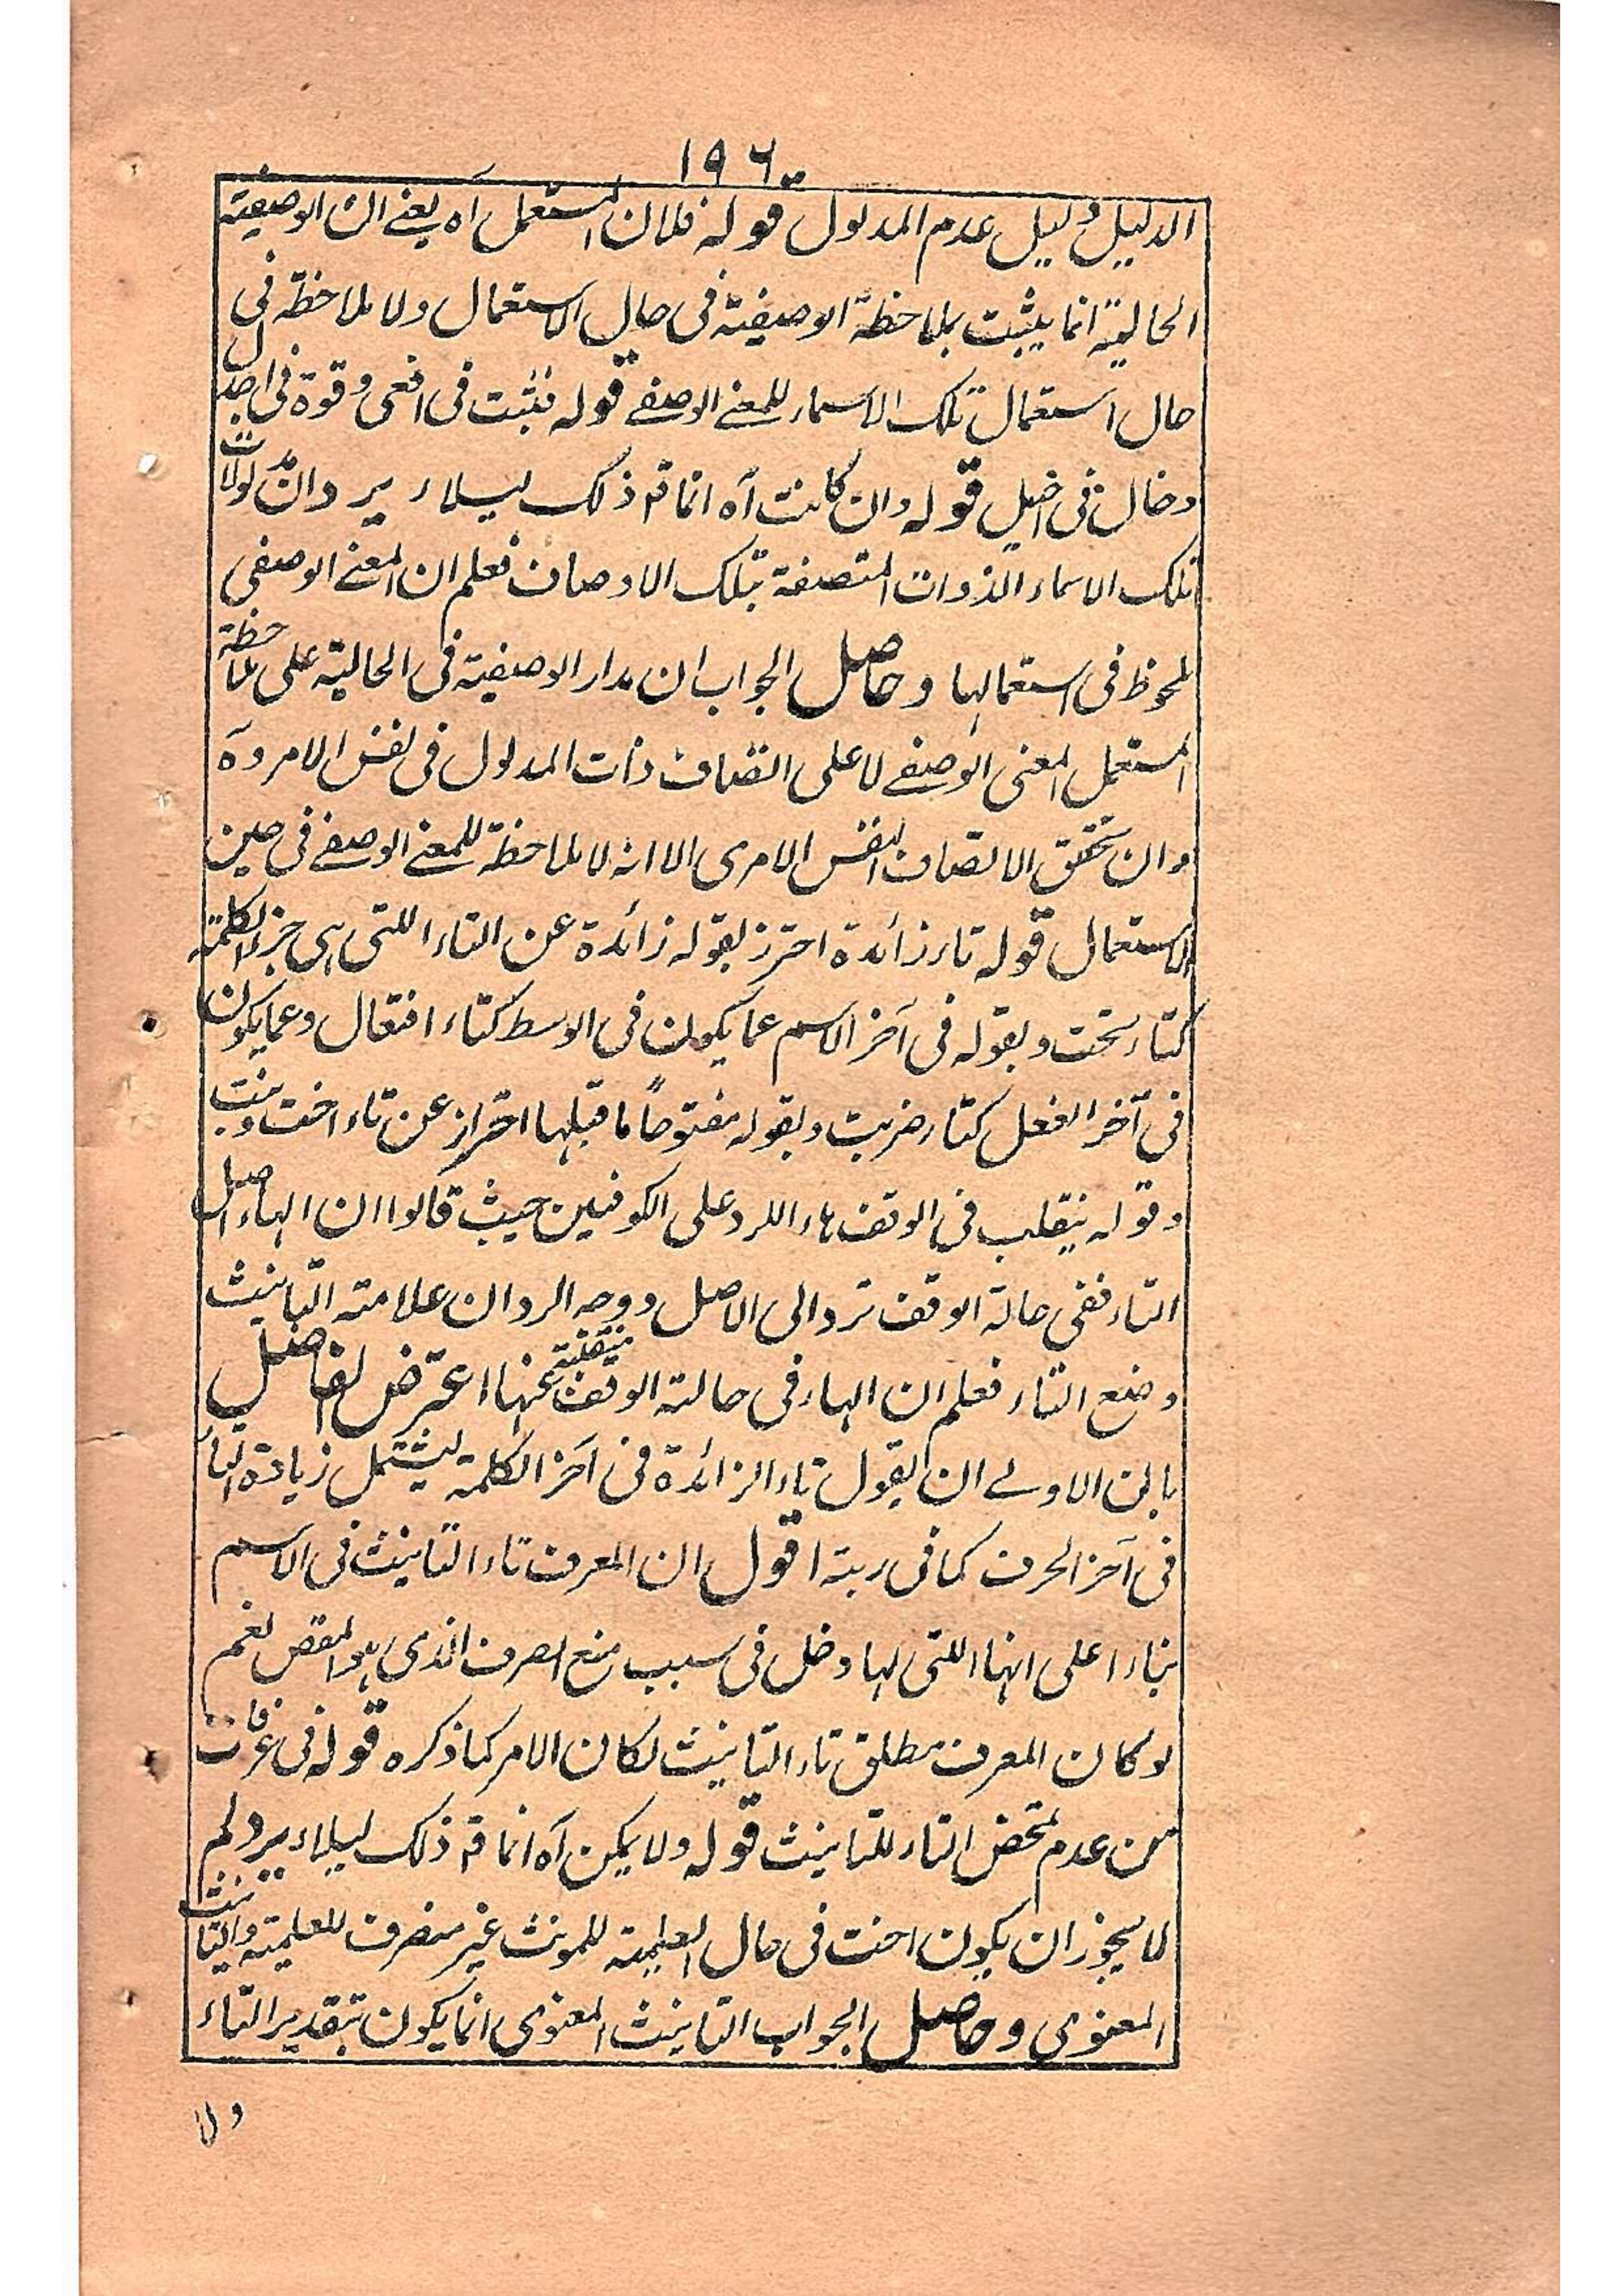 ١٩٦
الدليل دليل عدم المدلول قوله فلان المستعمل آه يعنے ان الوصفية
الحالية انما يثبت بملاحظة الوصفية فى حال الاستعمال ولا ملاحظة فى
حال استعمال تلك الاسماء للمعنے الوصفے قوله فثبت فى افعى وقوة فى اجدل
وخال فى اخيل قوله وان كانت آه انما قد ذلك ليلاء يرد وان مدلولات
تلك الاسماء الذوات المتصفة بتلك الاوصاف فعلم ان المعنے الوصفى
ملحوظ فى استعمالها وحاصل الجواب ان مدار الوصفية فى الحالية على ملاحظة
المستعمل المعنى الوصفے لا على اتصاف ذات المدلول فى نفس الامر وة
وان تحقق الاتصاف النفس الامرى الا انه لا ملاحظة للمعنے الوصفے فى حين
الاستعمال قوله تاء زائدة احترز بقوله زائدة عن التاء اللتى هى جزء الكلمة
كتاء تحت وبقوله فى آخر الاسم عما يكون فى الوسط كتاء افتعال وعما يكون
فى آخر الفعل كتاء ضربت وبقوله مفتوحاً ما قبلها احتراز عن تاء اخت وبنت
وقوله ينقلب فى الوقف هاء اللرد على الكوفيين حيث قالوا ان الهاء اصل
التاء ففى حالة الوقف ترد الى الاصل ووجه الرد ان علامته التانيث
وضع التاء فعلم ان الهاء فى حالته الوقف منقلبة عنها اعترض الفاضل
بان الاولے ان يقول تاء الزائدة فى آخر الكلمة ليشتمل زيادة التاء
فى آخر الحرف كما فى ربته اقول ان المعرف تاء التانيث فى الاسم
بناء اعلى انها اللتى لها دخل فى سبب منع الصرف الذى هو المقص نعم
لو كان المعرف مطلق تاء التانيث لكان الامر كما ذكره قوله فى عرفات
من عدم تمحض التاء للتانيث قوله ولا يمكن آه انما قد ذلك ليلاء يرد لم
لا يجوز ان يكون اخت فى حال العلمية للمونث غير منصرف للعلمية والتانيث
المعنوى وحاصل الجواب التانيث المعنوى انما يكون بتقدير التاء